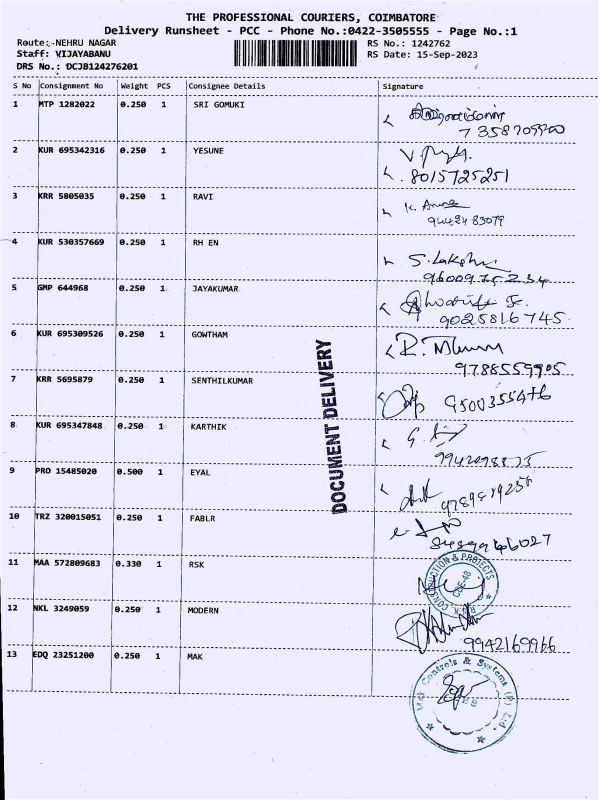 THE PROFESSIONAL COURIERS, COIMBATORE
Delivery Runsheet - PCC - Phone No.:0422-3505555 - Page No.:1
Route:-NEHRU NAGAR RS No.: 1242762
Staff: VIJAYABANU RS Date: 15-Sep-2023
DRS No.: DCJB124276201
S No Consignment No Weight PCS Consignee Details Signature
1 MTP 1282022 0.250 1 SRI GOMUKI
7358709900
2 KUR 695342316 0.250 1 YESUNE
8015725251
3 KRR 5805035 0.250 1 RAVI
9442483079
4 KUR 530357669 0.250 1 RH EN S. Lakshmi
9600975234
5 GMP 644968 0.250 1 JAYAKUMAR
9025816745
6 KUR 695309526 0.250 1 GOWTHAM
9788559905
7 KRR 5695879 0.250 1 SENTHILKUMAR
9500355476
8 KUR 695347848 0.250 1 KARTHIK
9 PRO 15485020 0.500 1 EYAL
10 TRZ 320015051 0.250 1 FABLR
8489946027
11 MAA 572809683 0.330 1 RSK
R.S.K. CONSTRUCTION & PROJECTS
CBE-48
12 NKL 3249059 0.250 1 MODERN
9942169966
13 EDQ 23251200 0.250 1 MAK
Mak Controls & Systems (P) Ltd.
DOCUMENT DELIVERY